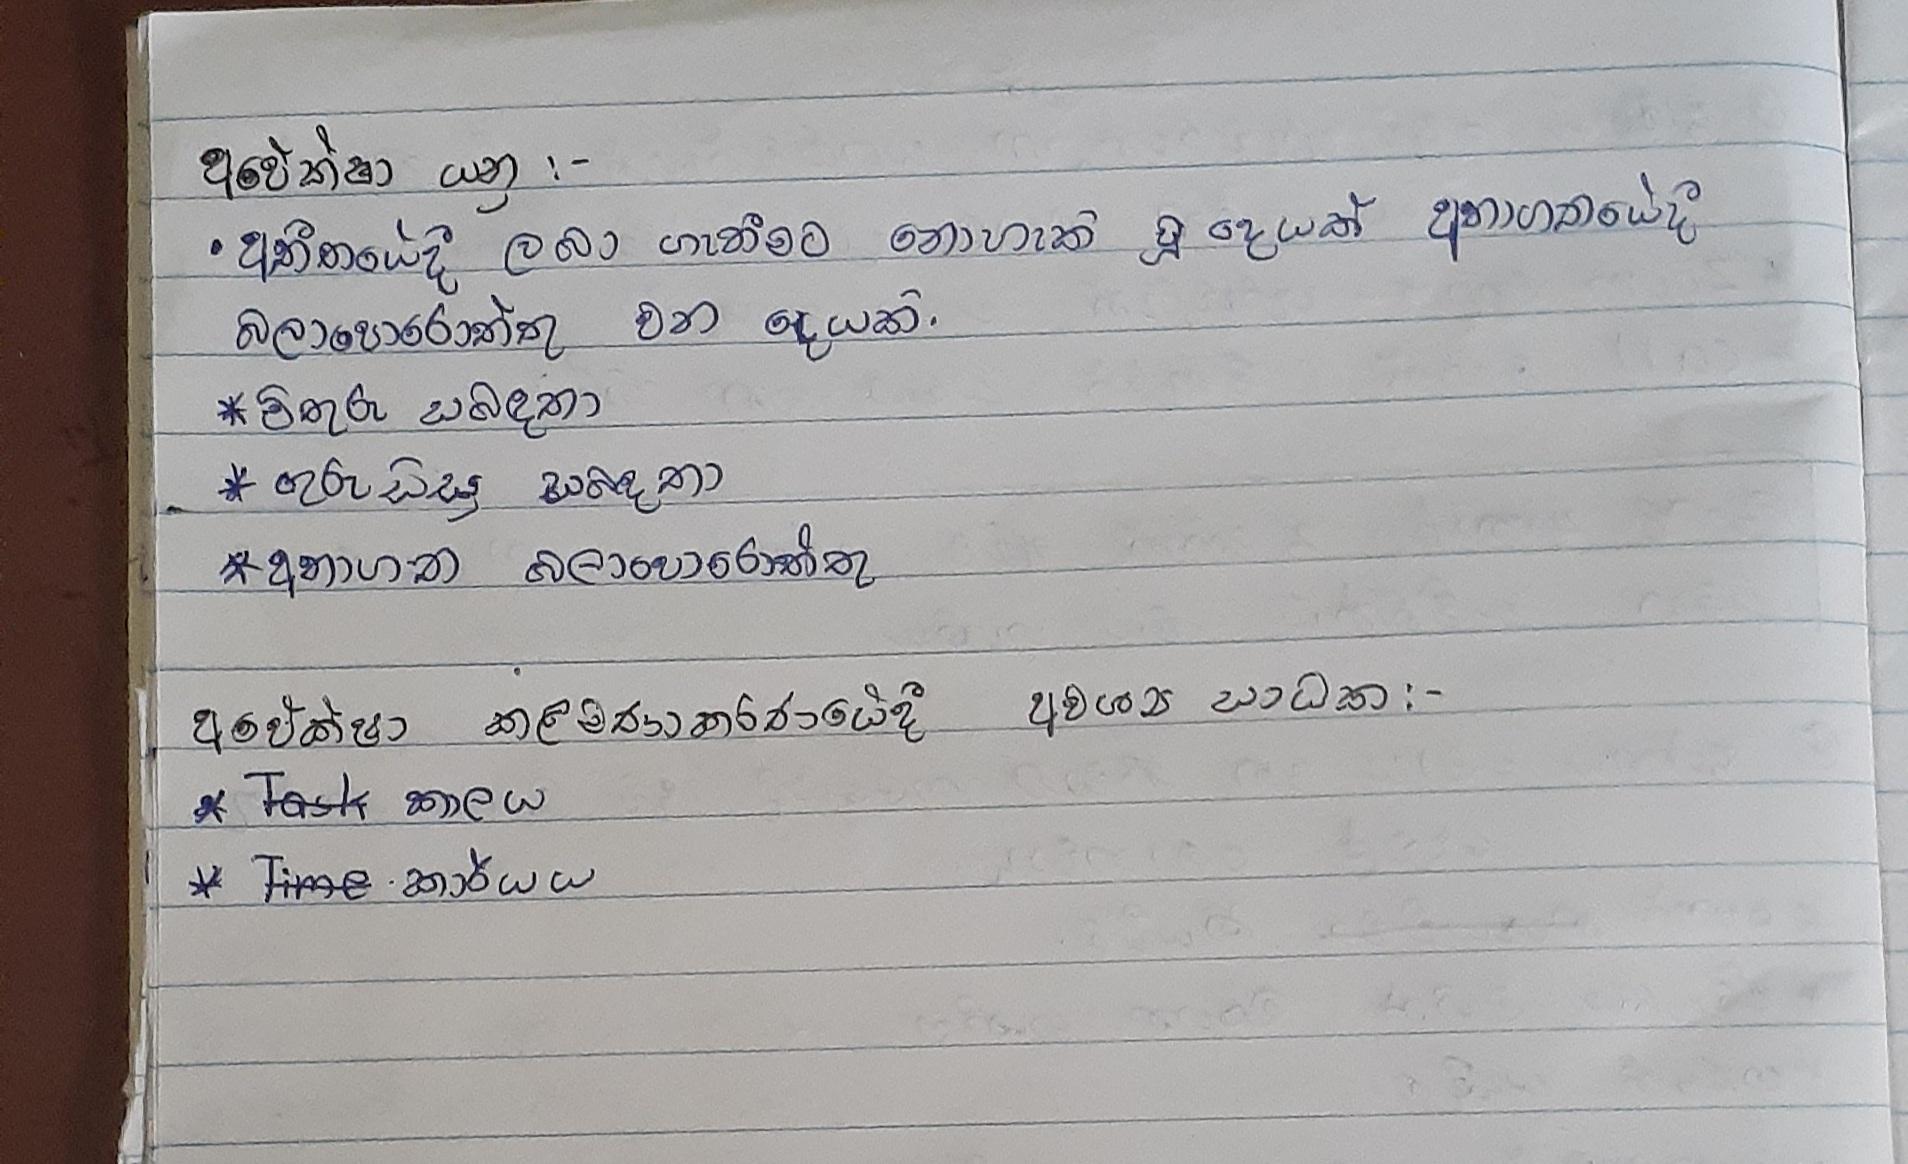 අපේක්ෂා යනු :-
• අතීතයේදී ලබා ගැනීමට නොහැකි වූ දෙයක් අනාගතයේදී
බලාපොරොත්තු වන දෙයකි.
* මිතුරු සබඳතා
* ගුරු සිසු සබඳතා
* අනාගත බලාපොරොත්තු
අපේක්ෂා කළමණාකරණයේදී අවශ්‍ය සාධක :-
* Task කාලය
* Time කාර්යය